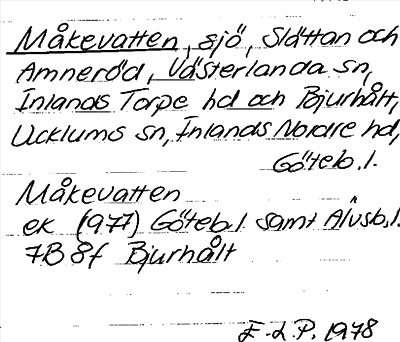 Måkevatten, sjö, Slättan och
Amneröd, Västerlanda sn,
Inlands Torpe hd och Bjurhålt,
Ucklums sn, Inlands Nordre hd,
Göteb. l.
Måkevatten
ek (1977) Göteb. l samt Älvsb. l.
7B 8f Bjurhålt
E.L.P. 1978